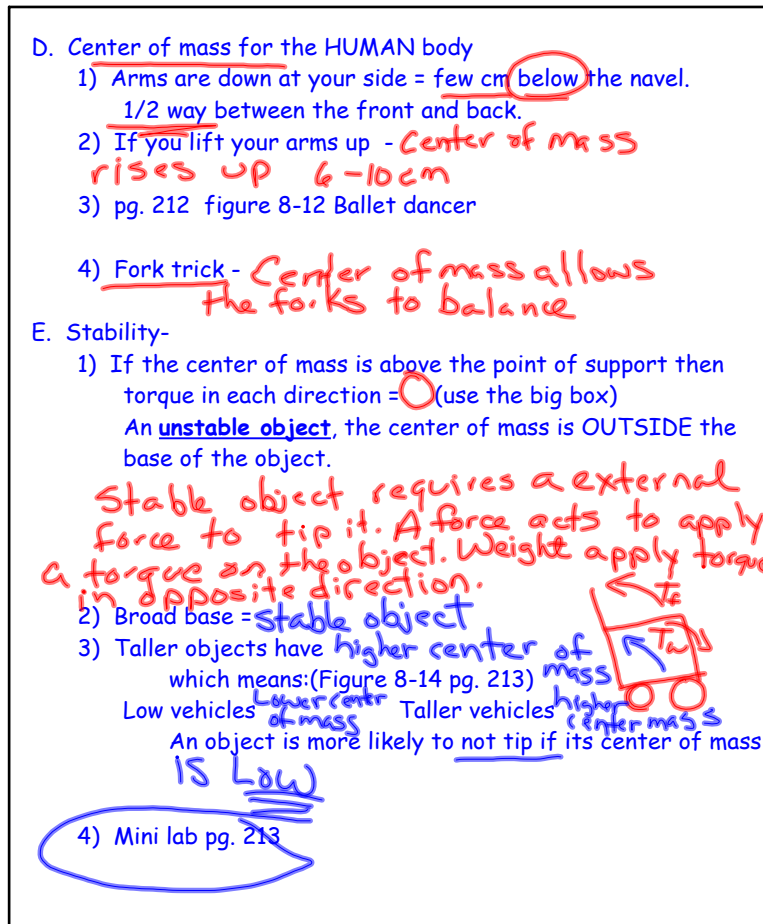 D. Center of mass for the HUMAN body
1) Arms are down at your side = few cm below the navel.
1/2 way between the front and back.
2) If you lift your arms up - Center of mass
rises up 6-10cm
3) pg. 212 figure 8-12 Ballet dancer
4) Fork trick - Center of mass allows
the forks to balance
E. Stability-
1) If the center of mass is above the point of support then
torque in each direction = 0 (use the big box)
An unstable object, the center of mass is OUTSIDE the
base of the object.
Stable object requires a external
force to tip it. A force acts to apply
a torque on the object. Weight apply torque
in opposite direction.
2) Broad base = stable object
3) Taller objects have higher center of
which means:(Figure 8-14 pg. 213) mass
Low vehicles Lower center of mass Taller vehicles higher center mass
An object is more likely to not tip if its center of mass
is Low
4) Mini lab pg. 213
Tf
Tw